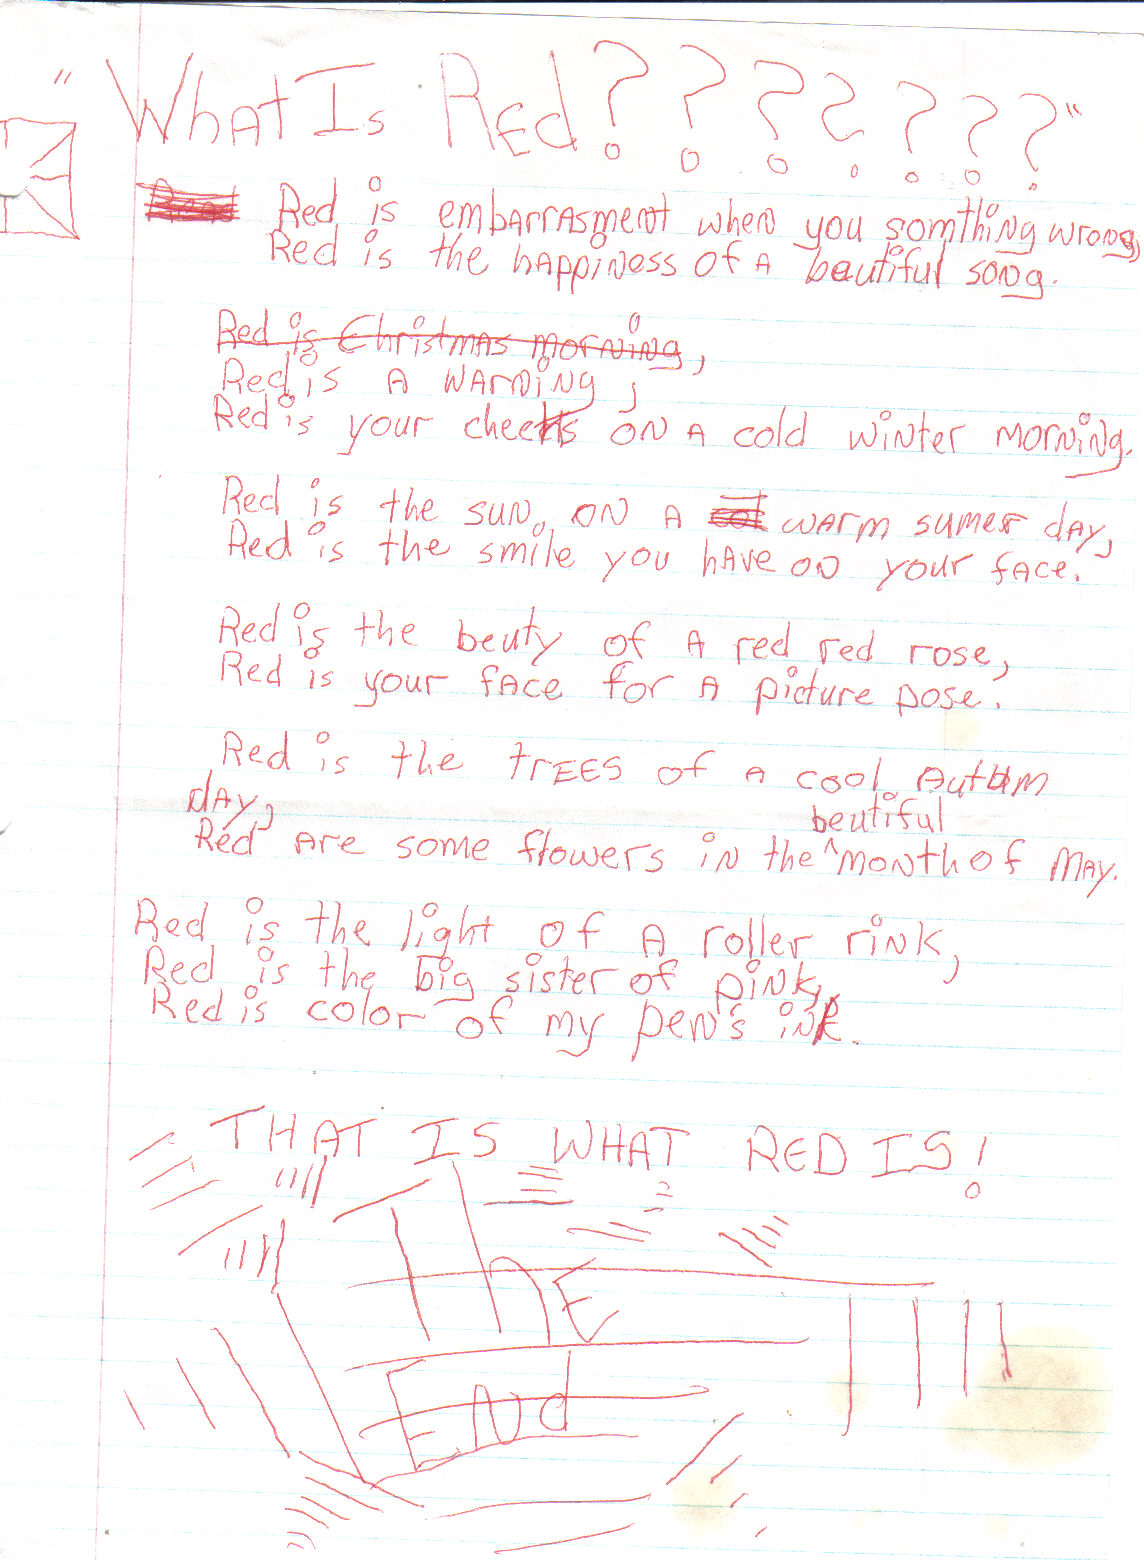 "What Is Red???????"
Red is embarrasment when you somthing wrong,
Red is the happiness of a beautiful song.
Red is Christmas morning,
Red is a warning,
Red is your cheeks on a cold winter morning.
Red is the sun, on a warm sumer day,
Red is the smile you have on your face.
Red is the beuty of a red red rose,
Red is your face for a picture pose.
Red is the trees of a cool Autum
day,
beutiful
Red are some flowers in the ^month of May.
Red is the light of a roller rink,
Red is the big sister of pink,
Red is color of my pen's ink.
THAT IS WHAT RED IS!
The
End